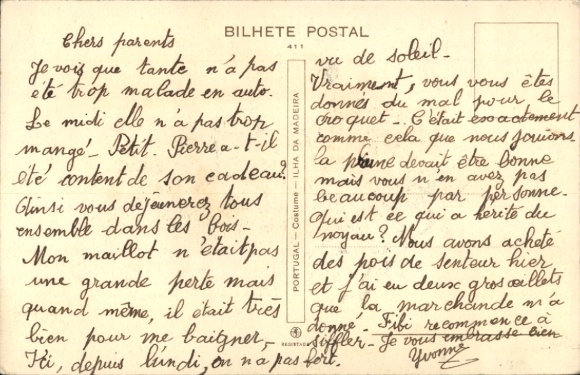 BILHETE POSTAL
411
Chers parents
Je vois que tante n'a pas
été trop malade en auto.
Le midi elle n'a pas trop
mangé - Petit Pierre a-t-il
été content de son cadeau?
Ainsi vous déjeunerez tous
ensemble dans les bois -
Mon maillot n'était pas
une grande perte mais
quand même, il était très
bien pour me baigner, -
Ici, depuis lundi, on n'a pas
PORTUGAL - Costume - ILHA DA MADEIRA
vu de soleil -
Vraiment, vous vous êtes
donnés du mal pour le
croquet - C'était exactement
comme cela que nous jouions
la prune devait être bonne
mais vous n'en avez pas
beaucoup par personne -
qui est ce qui a hérité du
noyau? Nous avons acheté
des pois de senteur hier
et j'ai eu deux gros œillets
que la marchande m'a
donné - Fifi recommence à
siffler - Je vous embrasse bien
fort.
Yvonne